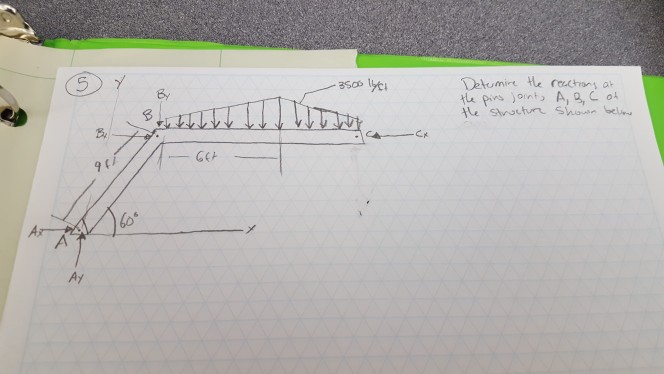 5
Y
By
3500 lb/ft
Determine the reactions at
the pins joints A, B, C of
the structure shown below
B
Bx
C
Cx
6ft
9ft
60°
Ax
A
x
Ay